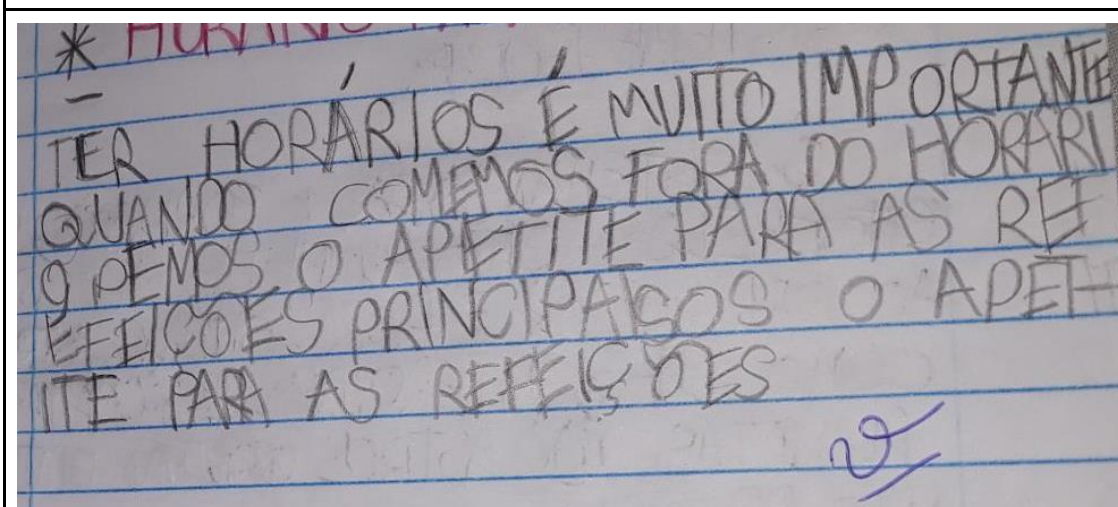 *
TER HORÁRIOS É MUITO IMPORTANTE
QUANDO COMEMOS FORA DO HORARI
O PEMOS O APETITE PARA AS REF
EFEIÇOES PRINCIPAISOS O APET
ITE PARA AS REFEIÇÕES